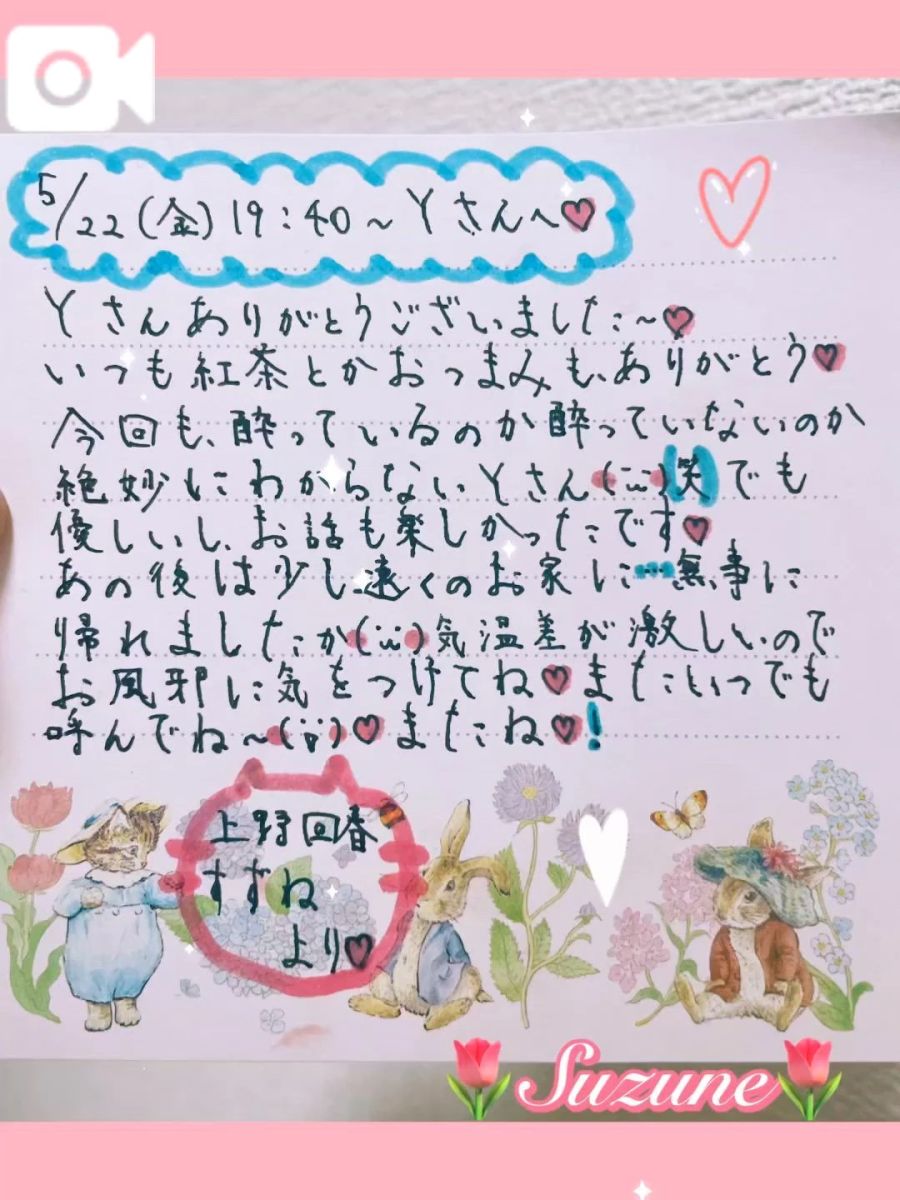 5/22(金)19:40~Yさんへ♡
Yさんありがとうございました~♡
いつも紅茶とかおつまみも、ありがとう♡
今回も、酔っているのか酔っていないのか
絶妙にわからないYさん(¨̮)笑でも
優しいし、お話も楽しかったです♡
あの後は少し遠くのお家に…無事に
帰れましたか(¨̮)気温差が激しいので
お風邪に気をつけてね♡またいつでも
呼んでね~(¨̮)♡またね♡!
上野回春
すずね
より♡
Suzune